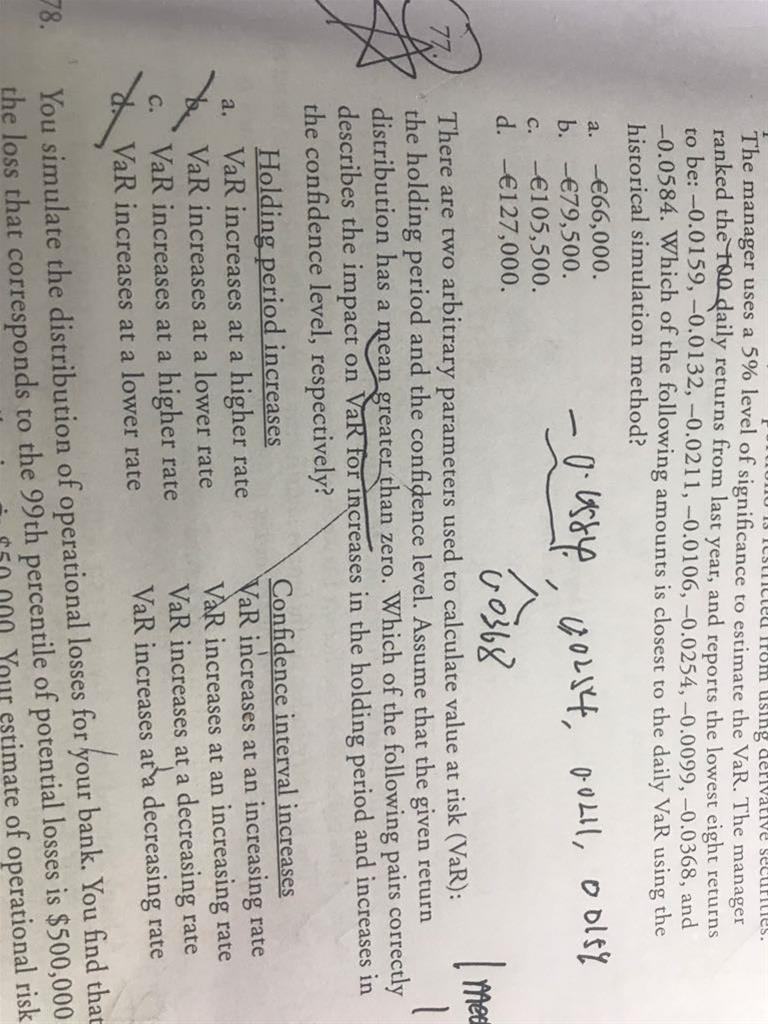 The manager uses a 5% level of significance to estimate the VaR. The manager
ranked the 100 daily returns from last year, and reports the lowest eight returns
to be: –0.0159, –0.0132, –0.0211, –0.0106, –0.0254, –0.0099, –0.0368, and
–0.0584. Which of the following amounts is closest to the daily VaR using the
historical simulation method?
a. –€66,000.
b. –€79,500.
c. –€105,500.
d. –€127,000.
– 0.0584, 0.0254, 0.0211, 0.0159
0.0368
77. There are two arbitrary parameters used to calculate value at risk (VaR):
the holding period and the confidence level. Assume that the given return
distribution has a mean greater than zero. Which of the following pairs correctly
describes the impact on VaR for increases in the holding period and increases in
the confidence level, respectively?
Holding period increases Confidence interval increases
a. VaR increases at a higher rate VaR increases at an increasing rate
b. VaR increases at a lower rate VaR increases at an increasing rate
c. VaR increases at a higher rate VaR increases at a decreasing rate
d. VaR increases at a lower rate VaR increases at a decreasing rate
78. You simulate the distribution of operational losses for your bank. You find that
the loss that corresponds to the 99th percentile of potential losses is $500,000
$50,000. Your estimate of operational risk